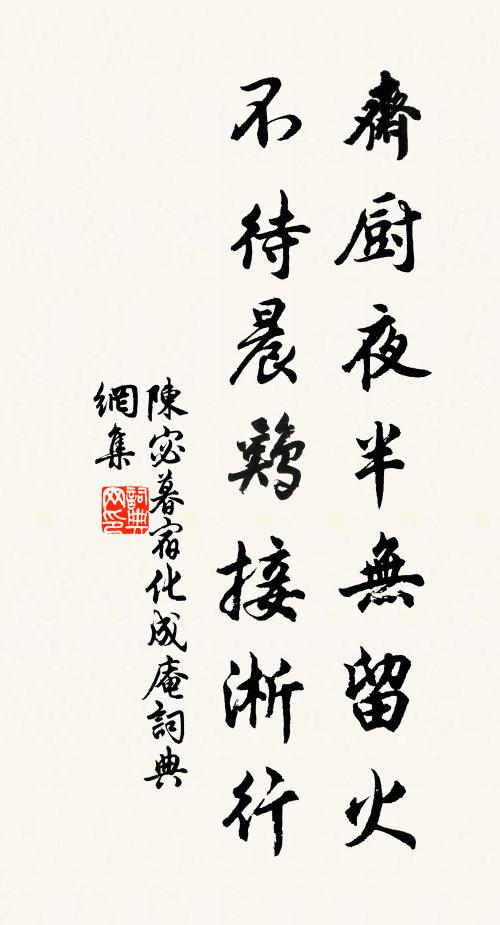 齋厨夜半無留火
不待晨鷄接淅行
陳宓暮宿化成庵詞典
網集
詞典
网印